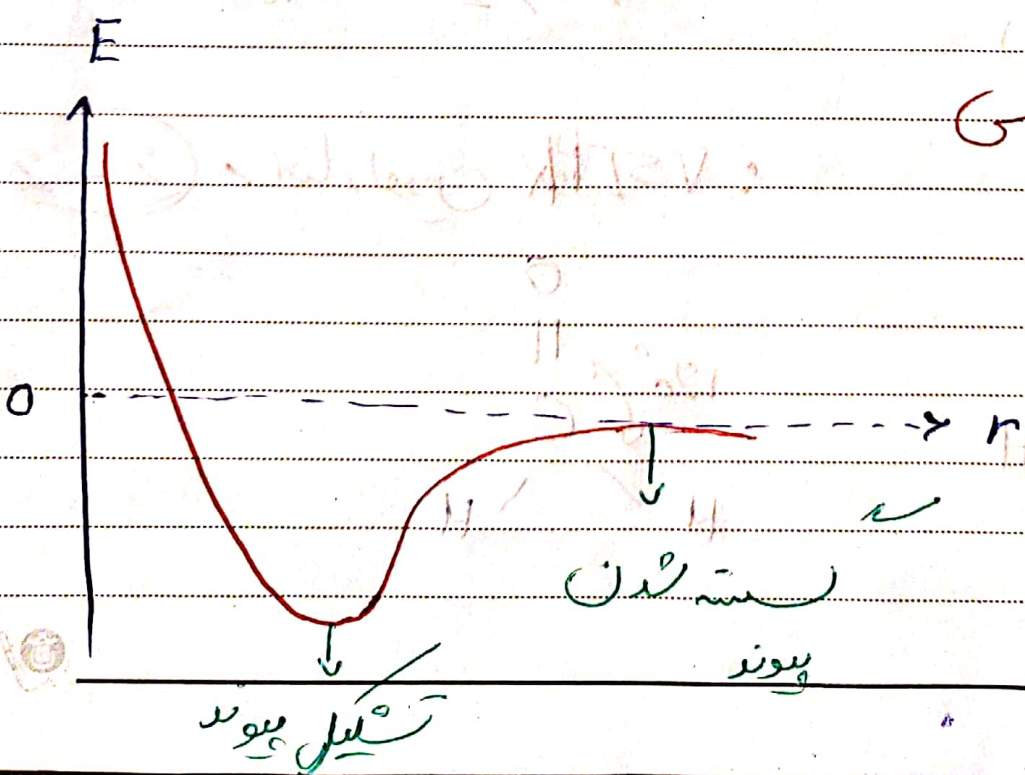 E
0
r
سسته شدن
پیوند
تشکیل پیوند